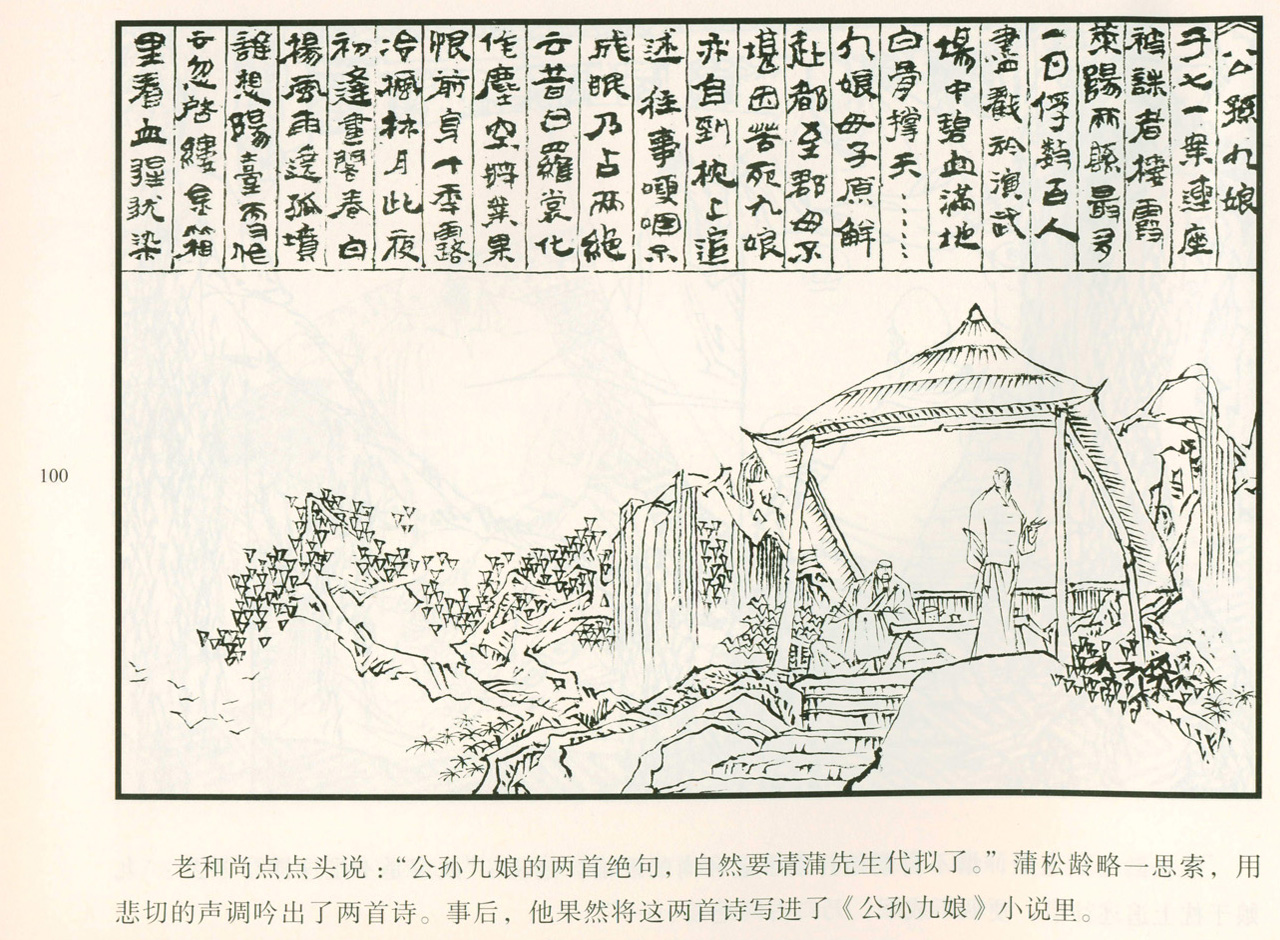 《公孫九娘
于七一案連座
被誅者棲霞
萊陽兩縣最多
一日俘數百人
盡戮於演武
場中碧血滿地
白骨撐天……
九娘母子原解
赴都至郡母不
堪困苦死九娘
亦自剄枕上追
述往事哽咽不
成眠乃占兩絕
云昔日羅裳化
作塵空將業果
恨前身十年露
冷楓林月此夜
初逢畫閣春白
楊風雨遶孤墳
誰想陽臺更作
云忽啓縷金箱
里看血腥犹染
100
老和尚点点头说：“公孙九娘的两首绝句，自然要请蒲先生代拟了。”蒲松龄略一思索，用
悲切的声调吟出了两首诗。事后，他果然将这两首诗写进了《公孙九娘》小说里。